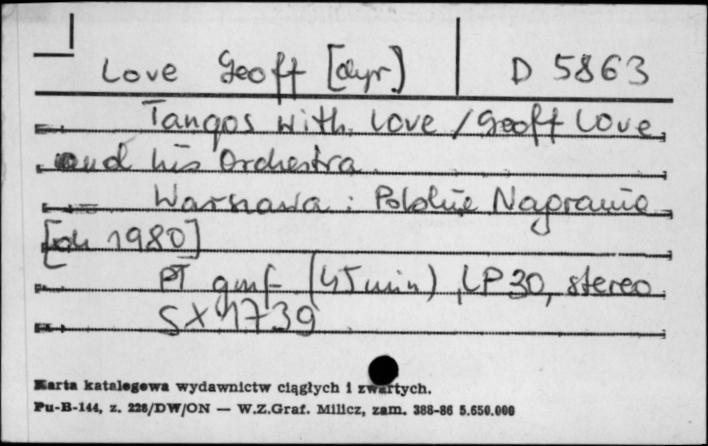 Love Geoff [dyr.] D 5863
Tangos with Love / Geoff Love
and his Orchestra.
Warszawa : Polskie Nagrania
[ok 1980]
PT gmf (45 min), LP 30, stereo
SX 1739
Karta katalogowa wydawnictw ciągłych i zwartych.
Pu-B-144, z. 228/DW/ON — W.Z.Graf. Milicz, zam. 388-86 5.650.000